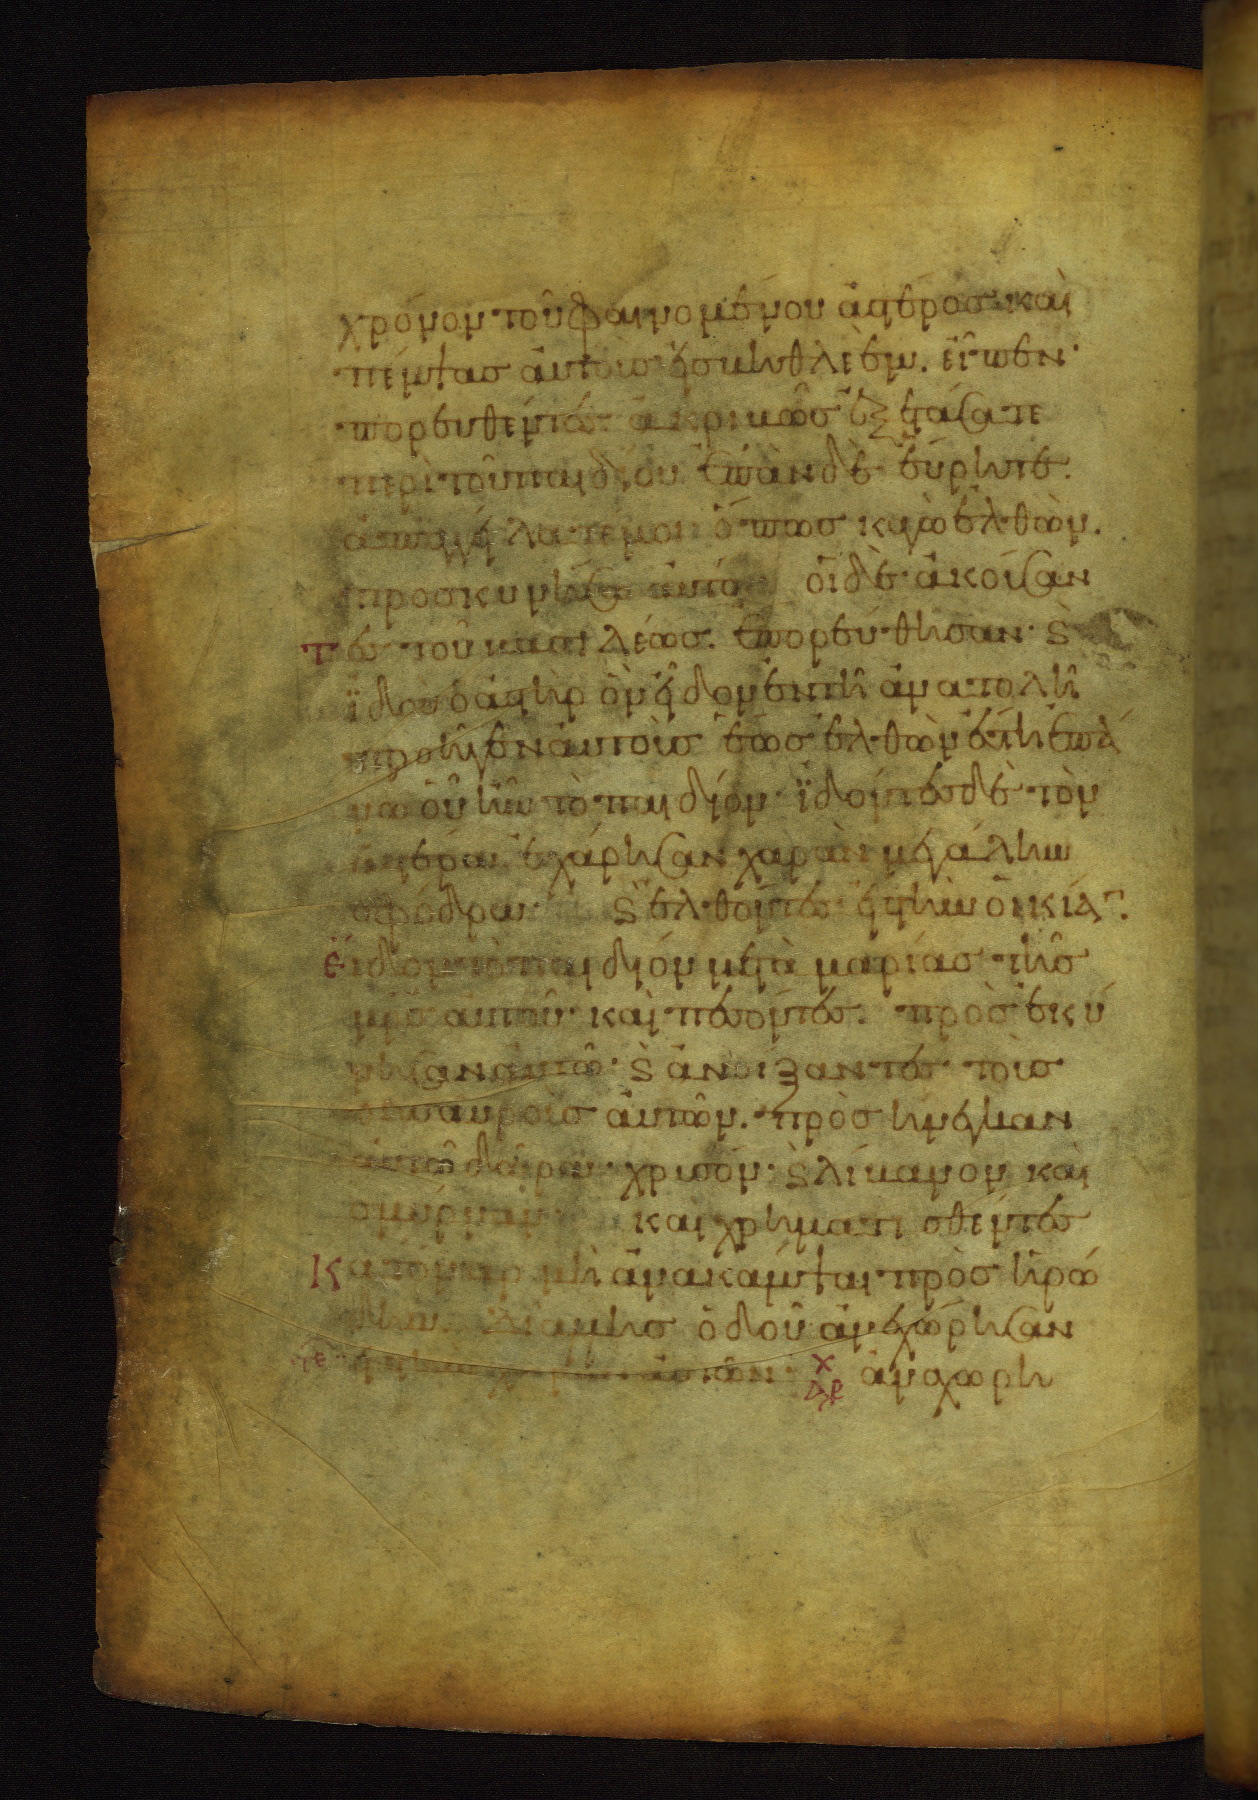 χρόνον τοῦ φαινομένου ἀστέρος καὶ
πέμψας ἀυτοὺς εἰς βηθλεὲμ. εἶπεν·
πορευθέντες ἀκριβῶς ἐξετάσατε
περὶ τοῦ παιδίου ἐπὰν δὲ ἕυρητε.
ἀπαγγείλατέ μοι ὅπως καγὼ ἐλθὼν.
προσκυνήσω ἀυτῶ οἱ δὲ ἀκούσαν
τες τοῦ βασιλέως. ἐπορεύθησαν· ϛ̀
ϊδου ὁ ἀστὴρ ὃν εἶδον ἐν τῆ ἀνατολῆ
προῆγεν ἀυτοὺς ἕως ἐλθὼν ἔστη ἐπά
νω οὗ ἦν τὸ παιδίον· ϊδόντες δὲ τὸν
ἀστέρα ἐχάρησαν χαρὰν μεγάλην
σφόδρα· ϛ̀ ἐλθόντες εἰς τὴν οἰκίαν.
ἐίδον τὸ παιδίον μετὰ μαρίας τῆς
μρ̅ς ἀυτοῦ· καὶ πεσόντες. προσεκύ
νησαν ἀυτῶ· ϛ̀ ἀνοίξαντες τοὺς
θησαυροὺς ἀυτῶν. προσήνεγκαν
ἀυτῶ δῶρα· χρυσὸν· ϛ̀ λίβανον καὶ
σμύρναν· καὶ χρηματισθέντες
κατόναρ μὴ ἀνακάμψαι πρὸς ἡρώ
δην. δι ἄλλης ὁδοῦ ἀνεχώρησαν
εἰς τὴν χώραν ἀυτῶν· χ ἀρ ἀναχωρη